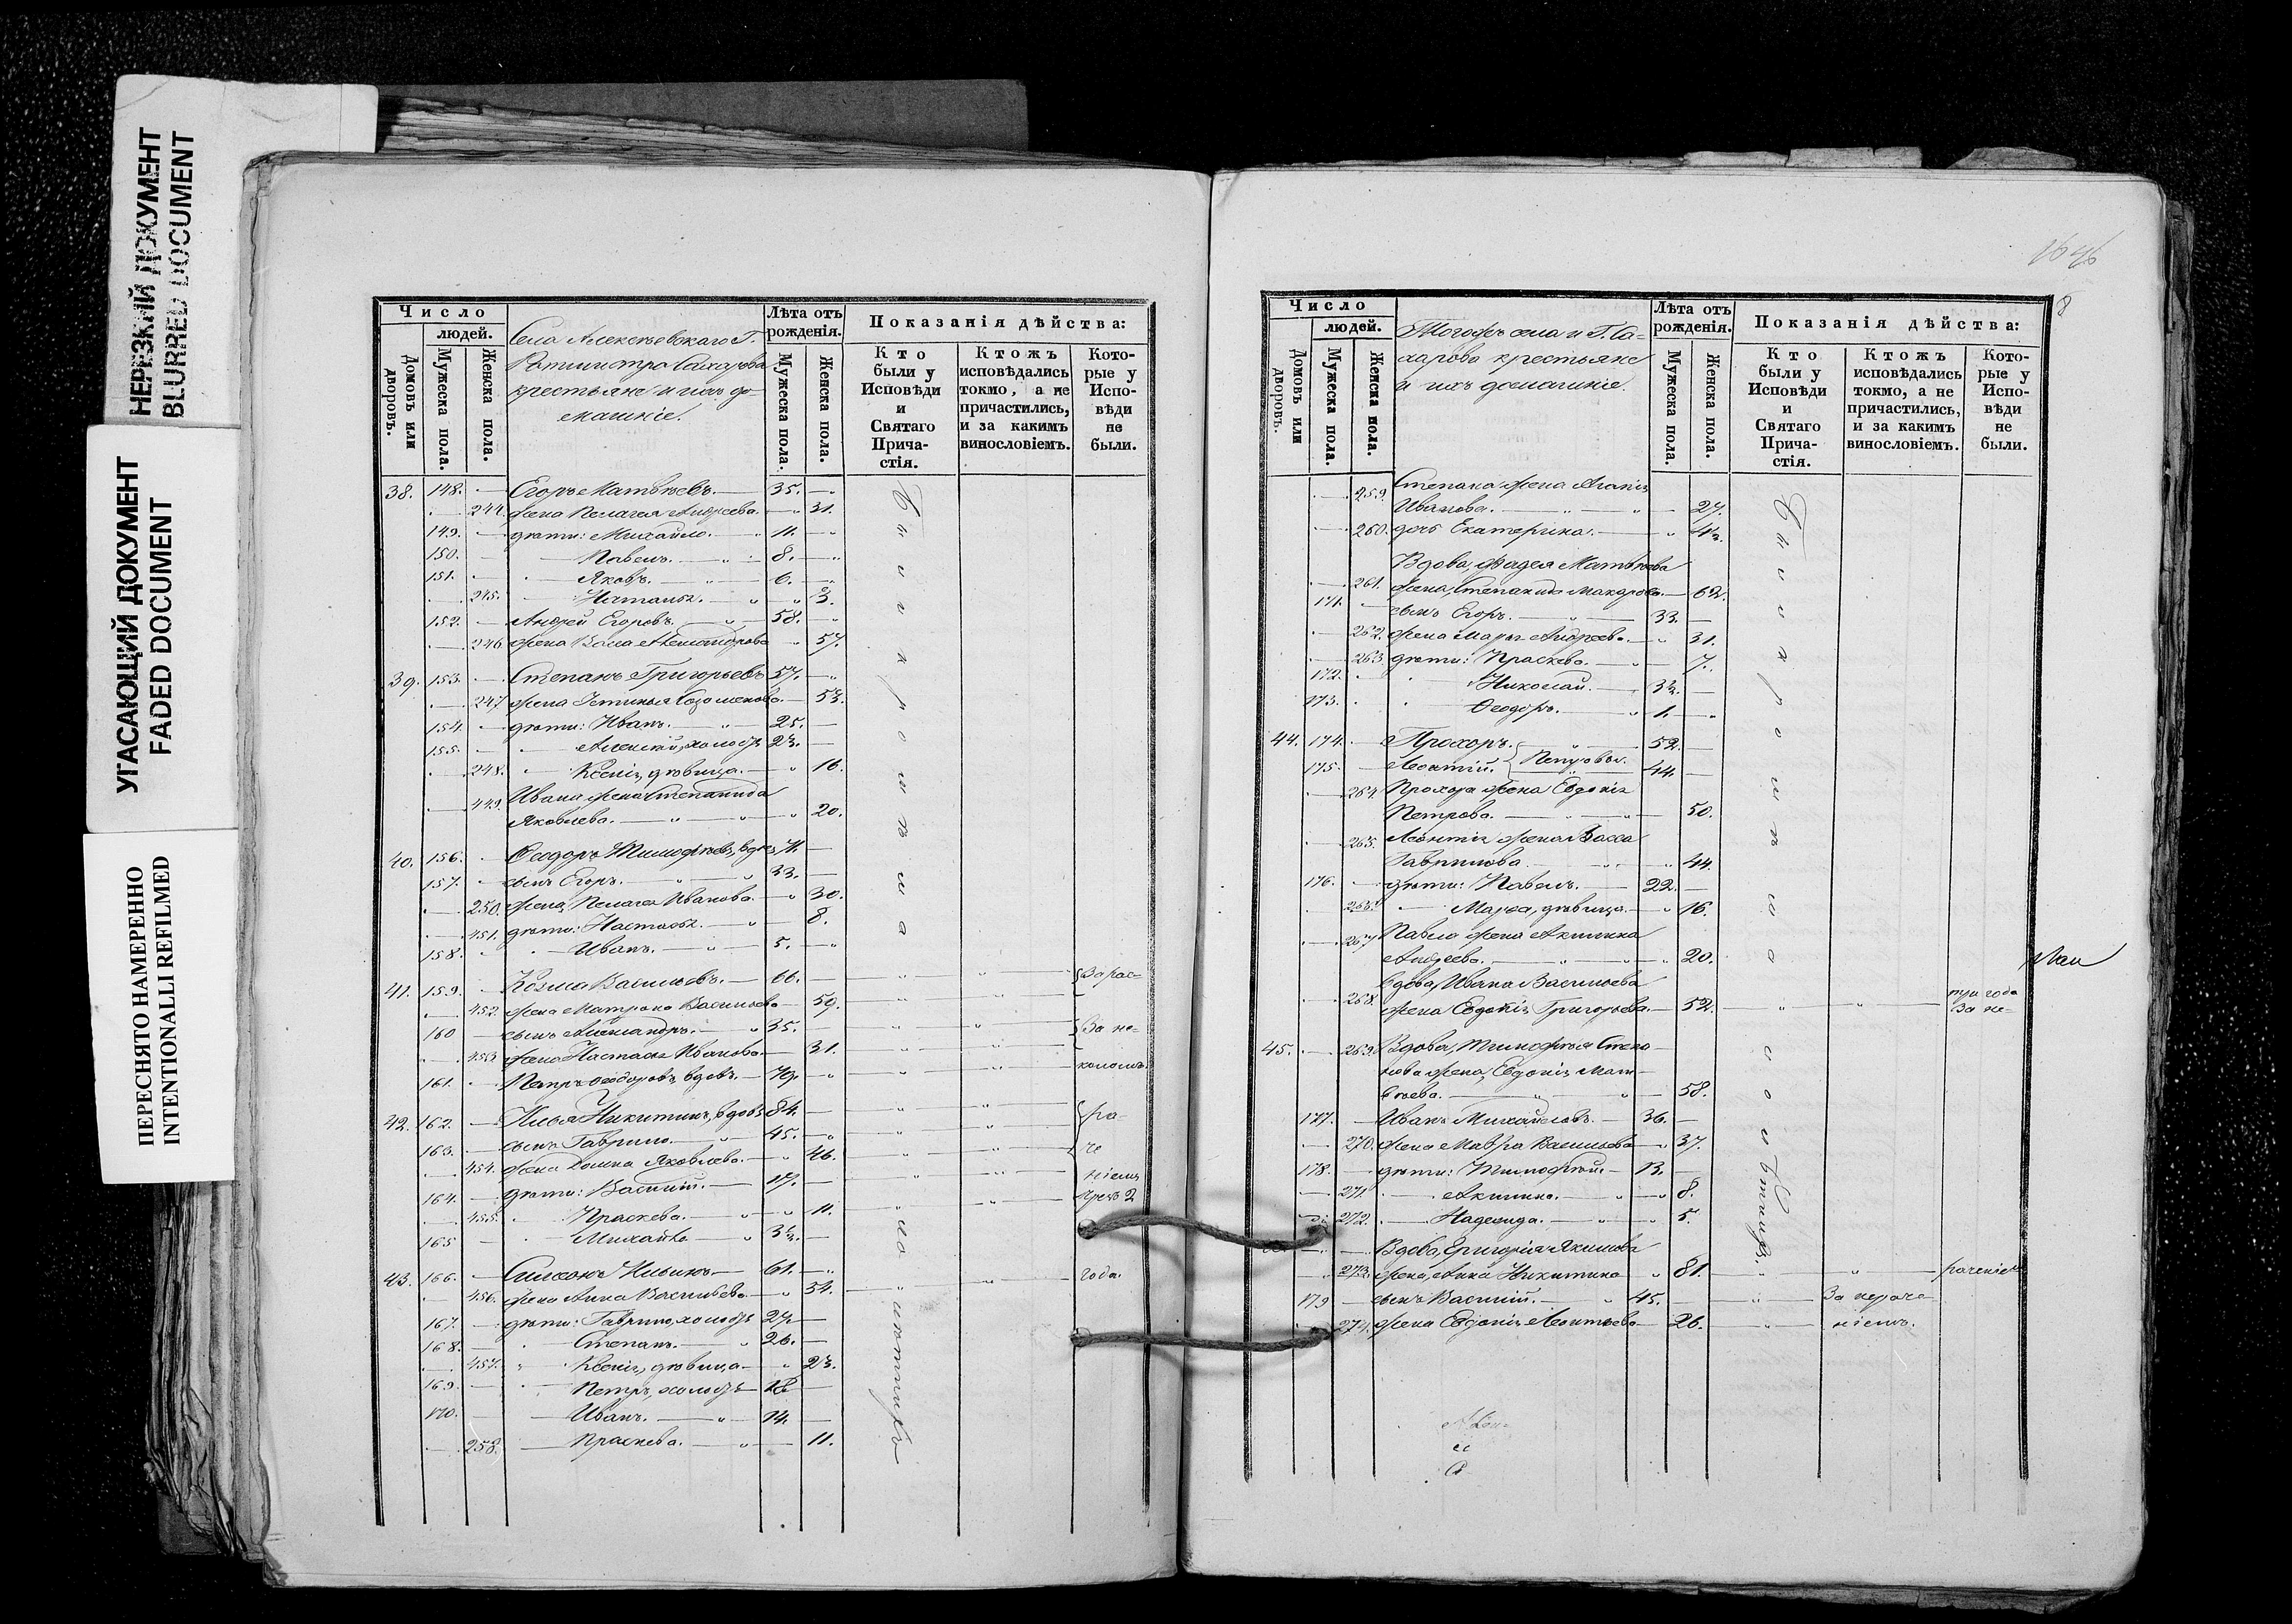 НЕРЕЗКИЙ ДОКУМЕНТ
BLURRED DOCUMENT
УГАСАЮЩИЙ ДОКУМЕНТ
FADED DOCUMENT
ПЕРЕСНЯТО НАМЕРЕННО
INTENTIONALLI REFILMED
Число
людей.
Домовъ или дворовъ.
Мужеска пола.
Женска пола.
Села Алексѣевскаго Г.
Ротмистра Сахарова
крестьяне и ихъ до-
машніе.
Лѣта отъ рожденія.
Мужеска пола.
Женска пола.
Показанія дѣйства:
Кто были у Исповѣди и Святаго Причастія.
Ктожъ исповѣдались токмо, а не причастились, и за какимъ винословіемъ.
Которые у Исповѣди не были.
38. 148. Егоръ Матвѣевъ. 35.
244. жена Пелагея Андреева. 31.
149. дѣти: Михайло. 11.
150. Павелъ. 8.
151. Яковъ. 6.
245. Наталья. 3.
152. Андрей Егоровъ. 58.
246. жена Александрова 57.
39. 153. Степанъ Григорьевъ 57.
247. жена Устинья 53.
154. дѣти: Иванъ. 25.
155. Алексѣй, холостъ 23.
248. Ксенія, дѣвица. 16.
449. Ивана жена Степанида
Яковлева. 20.
40. 156. Ѳеодоръ Тимофѣевъ, вдов 71.
157. сынъ Егоръ. 33.
250. жена Пелагея Иванова. 30.
451. дѣти: Настасья. 8.
158. Иванъ. 5.
41. 159. Козма Васильевъ. 66.
452. жена Матрона Васильева 59.
160 сынъ Александръ. 35.
453 жена Настасья Иванова. 31.
161. Петръ Ѳеодоровъ, вдовъ. 79.
42. 162. Илья Никитинъ, вдовъ 84.
163. сынъ Гаврило. 45.
454. жена Домна Яковлева. 46.
164. дѣти: Василій. 17.
455. Праскева. 11.
165 Михайло 3½.
43. 166. Симеонъ Ильинъ 61.
456. жена Анна Васильева. 54.
167. дѣти: Гаврило, холостъ 27
168. Степанъ. 26.
457. Ксенія, дѣвица 23.
169. Петръ, холостъ 18
170. Иванъ. 14.
258. Праскева. 11.
За рас-
коломъ.
ра-
че
ніемъ
чрезъ 2
года.
1646
8
Число
людей.
Домовъ или дворовъ.
Мужеска пола.
Женска пола.
Тогожъ села и Г. Са-
харова крестьяне
и ихъ домашніе.
Лѣта отъ рожденія.
Мужеска пола.
Женска пола.
Показанія дѣйства:
Кто были у Исповѣди и Святаго Причастія.
Ктожъ исповѣдались токмо, а не причастились, и за какимъ винословіемъ.
Которые у Исповѣди не были.
259. Степана жена Агапія
Иванова. 27.
260. дочь Екатерина. 4½.
Вдова, Фадея Матвѣева
261. жена, Степанида Макарова. 62.
171. сынъ Егоръ. 33.
262. жена Марья Андреева. 31.
263. дѣти: Праскева. 7.
172. Николай. 3½.
173. Ѳеодоръ. 1.
44. 174. Прохоръ. 52.
175. Леонтій. Петровы. 44.
264. Прохора жена Евдокія
Петрова. 50.
265. Леонтія жена Васса
Гаврилова. 44.
176. дѣти: Павелъ. 22.
Марѳа, дѣвица. 16.
267 Павла жена Акилина
Андреева. 20.
вдова, Ивана Васильева
268 жена Евдокія Григорьева. 52.
три года
За не-
45. 269. Вдова, Тимофѣя Степа-
нова жена, Евдокія Мат-
вѣева. 58.
177. Иванъ Михайловъ. 36.
270. жена Мавра Васильева 37.
178. дѣти: Тимофѣй. 13.
271. Акилина. 8.
272. Надежда. 5.
Вдова, Григорія Якимова
273. жена, Анна Никитина 81.
раченіемъ
179 сынъ Василій. 45. За нераче
274. жена Евдокія Леонтьева 26. ніемъ.